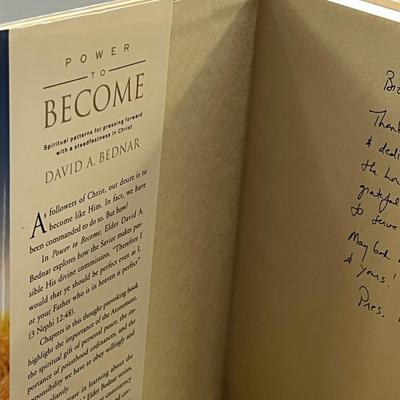 POWER
TO
BECOME
Spiritual patterns for pressing forward
with a steadfastness in Christ
DAVID A. BEDNAR
As followers of Christ, our desire is to
become like Him. In fact, we have
been commanded to do so. But how?
In Power to Become, Elder David A.
Bednar explores how the Savior makes pos-
sible His divine commission, "Therefore I
would that ye should be perfect even as I,
or your Father who is in heaven is perfect"
(3 Nephi 12:48).
Chapters in this thought-provoking book
highlight the importance of the Atonement,
the spiritual gift of personal peace, the im-
portance of priesthood ordinances, and the
responsibility we have to obey willingly and
in learning about the
Elder Bednar writes,
consistency
Thank
&
the
grateful
to serve
May God
& yours!
Pres.